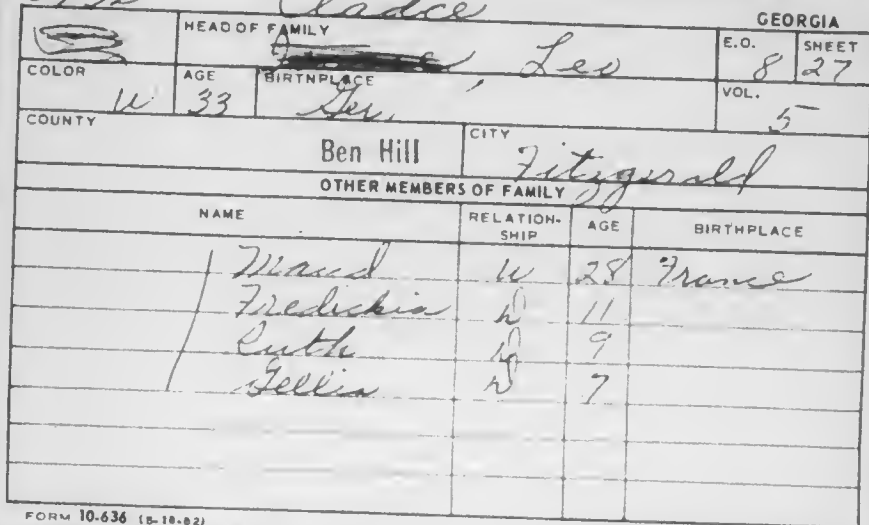 GEORGIA
HEAD OF FAMILY
, Leo
E.O. 8
SHEET 27
COLOR W
AGE 33
BIRTHPLACE
VOL. 5
COUNTY Ben Hill
CITY Fitzgerald
OTHER MEMBERS OF FAMILY
NAME RELATION-SHIP AGE BIRTHPLACE
Maud W 28 France
D 11
Ruth D 9
D 7
FORM 10-636